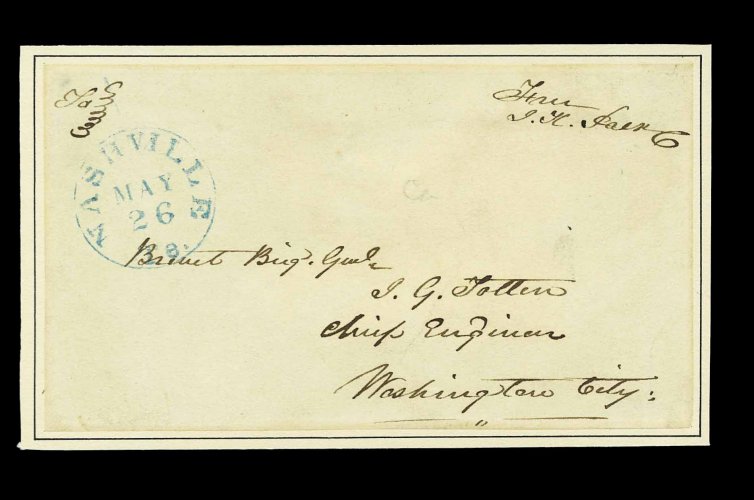 To
From
J. K. Polk
NASHVILLE
MAY
26
Te.
Brevet Brig. Genl.
J. G. Totten
Chief Engineer
Washington City.